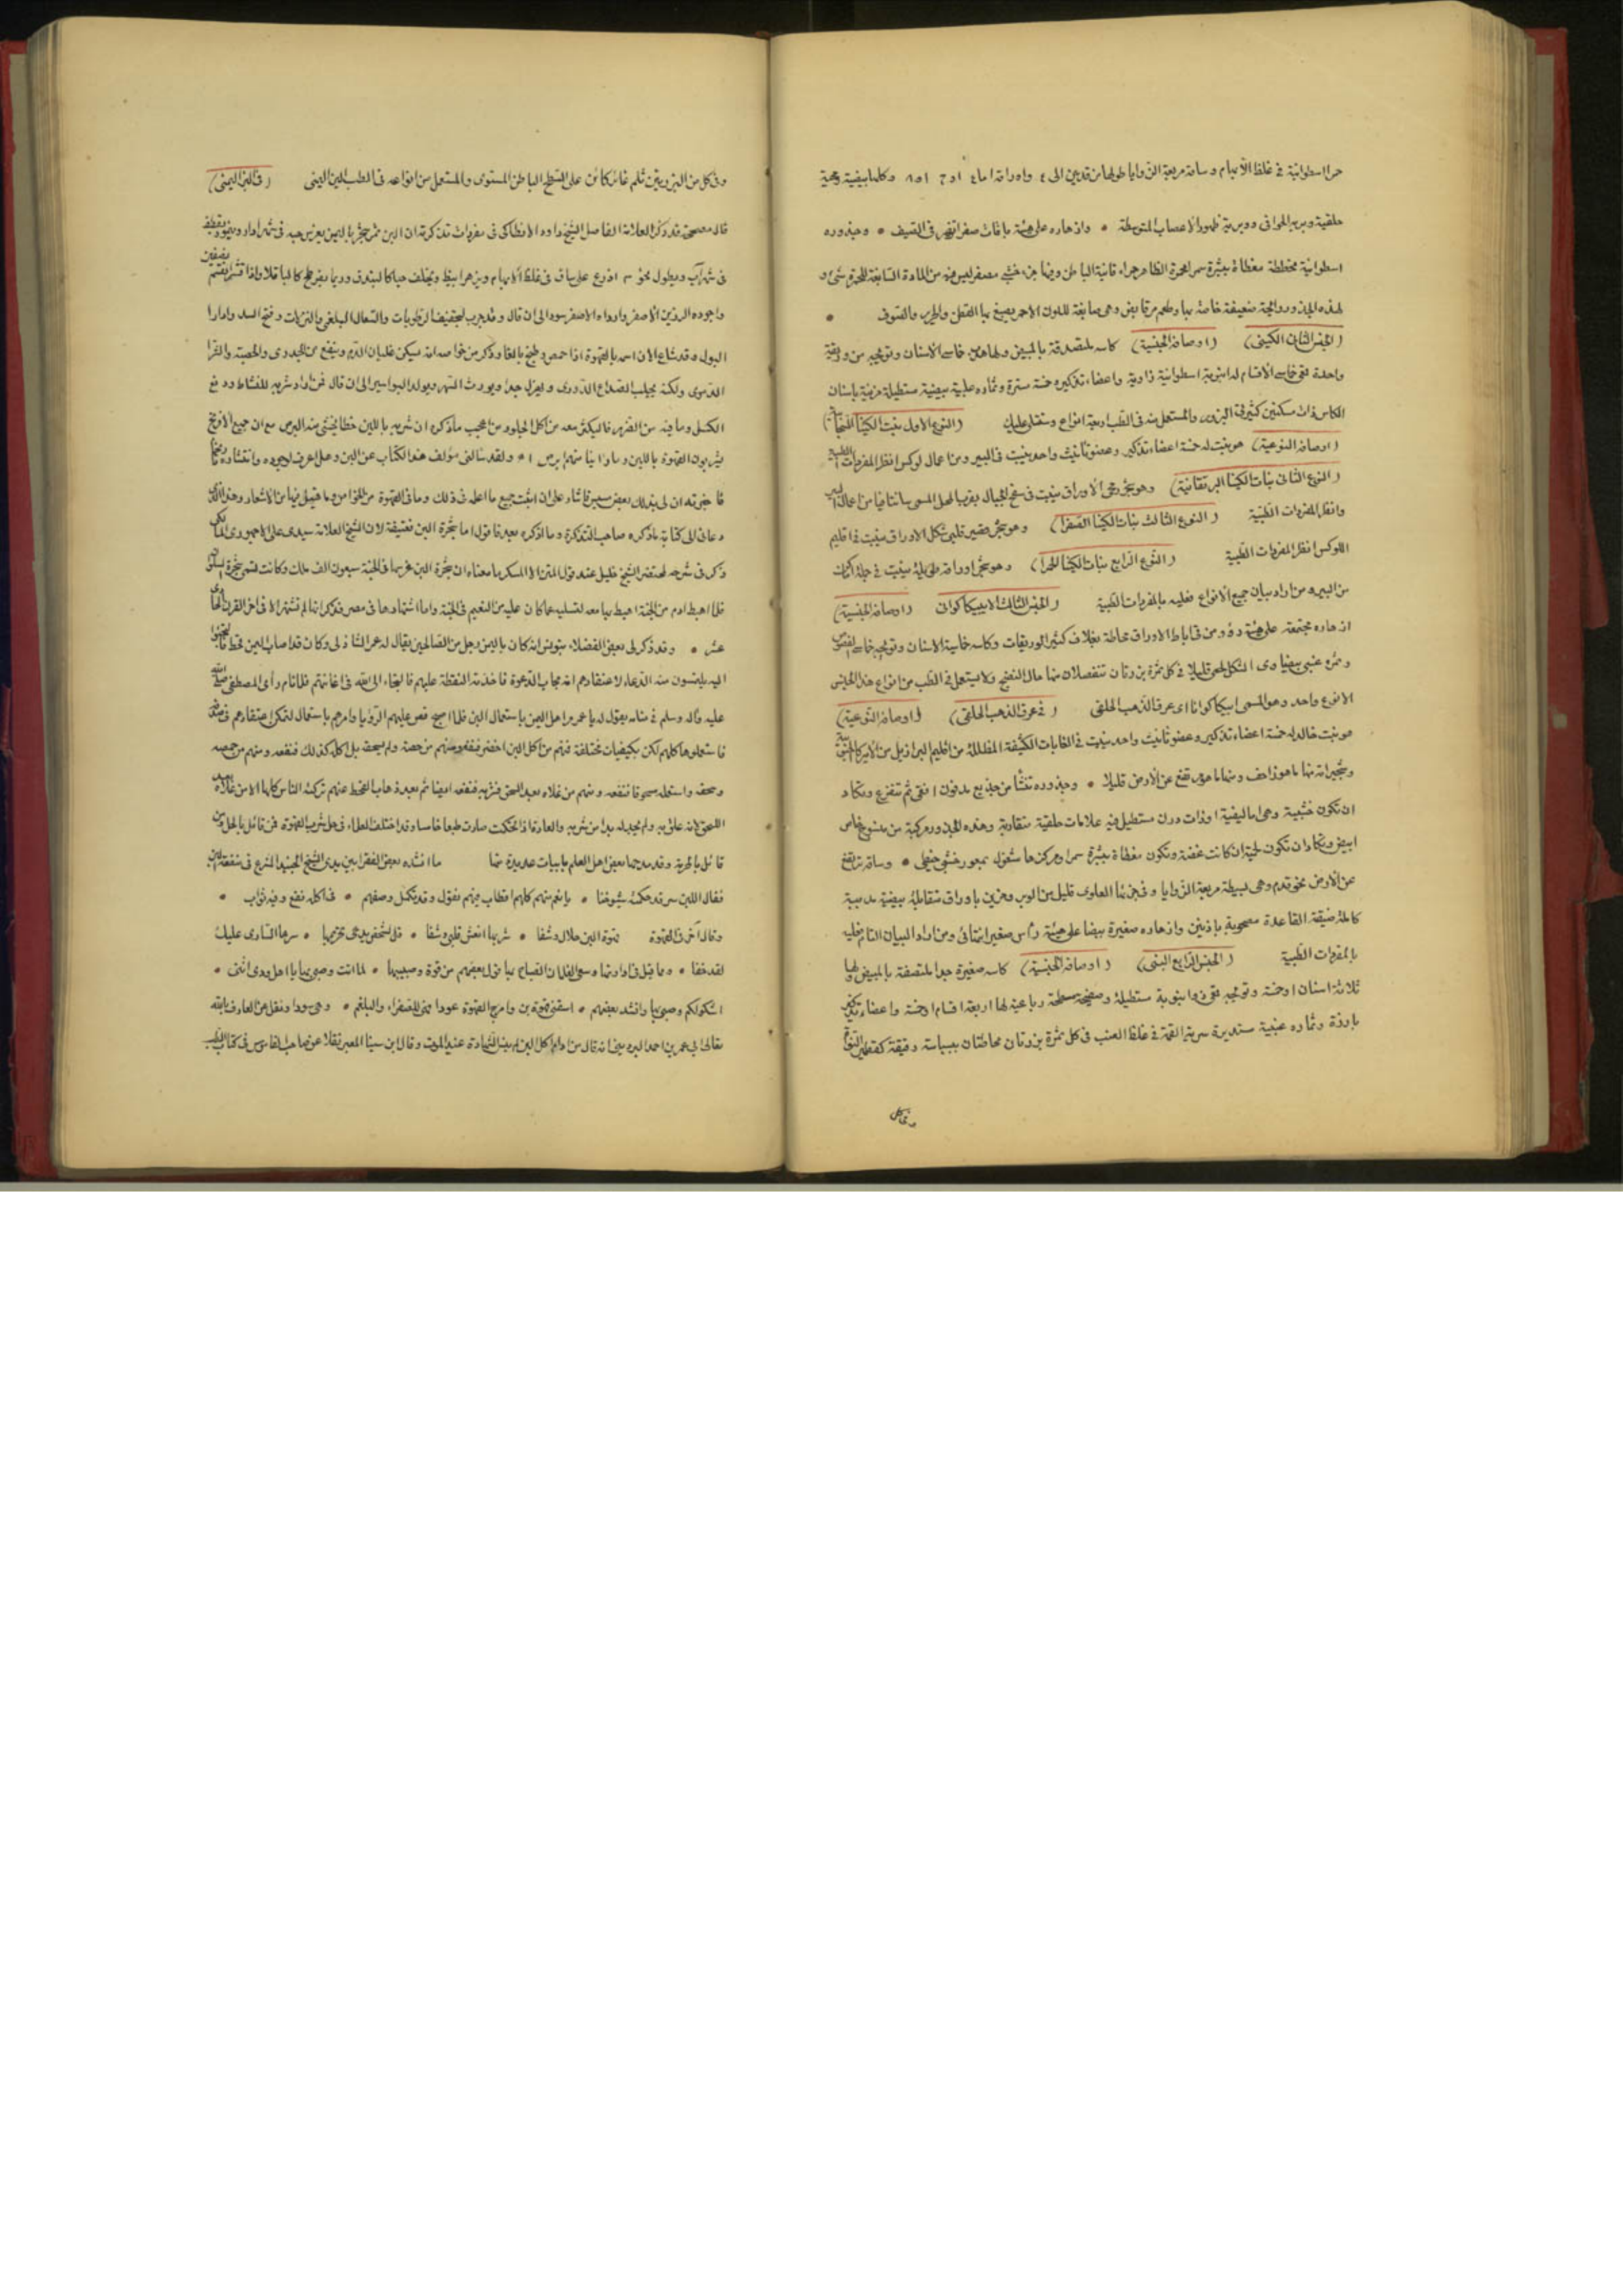 حمرا اسطوانية في غلظ الابهام وساقه مربعة الزوايا طولها من قدمين الى ٤ واوراقه اما ٤ او ٦ او ٨ وكلها بيضية رمحية
حلقية وبرية الحوافى ووبرية ظهور الاعصاب المتوسطة • وازهاره على هيئة باقات صفر اتظهر فى الصيف • وجذوره
اسطوانية مخططة مغطاة ببشرة سمر الحمرة الظاهر حمراء قانية الباطن وفيها جزء خشبى مصفر ليس فيه من المادة الصابغة للحمرة شىء و
لهذه الجذور رائحة ضعيفة خاصة بها وطعم مر قابض وهى صابغة للون الاحمر يصبغ بها القطن والحرير والصوف •
(الجنس الثانى الكينى) (اوصافه الجنسية) كاسه ملتصقة بالمبيض ولها هدب خماسى الاسنان وتويجه من وريقة
واحدة قمعى خماسى الاقسام له انبوبة اسطوانية زاوية واعضاء تذكيره خمسة مستترة وثماره علبية بيضية مستطيلة مزينة باسنان
الكاس ذات مسكنين كثيرتى البزور والمستعمل منه فى الطب اربعة انواع وستتلى عليك (النوع الاول نبت الكينا السنجابى)
(اوصافه النوعية) هو نبت له خمسة اعضاء تذكير وعضو تأنيث واحد ينبت فى البيرو من اعمال لوكسا انظر المفردات الطبية
(النوع الثانى نبات الكينا البرتقانية) وهو شجر رمحى الاوراق ينبت فى سفح الجبال بقرب المحل المسمى بسانتافيا من اعمال البيرو
وانظر المفردات الطبية (النوع الثالث نبات الكينا الصفرا) وهو شجر صغير قلبى شكل الاوراق ينبت فى اقليم
اللوكسا انظر المفردات الطبية (النوع الرابع نبات الكينا الحمرا) وهو شجر اوراقه طويلة ينبت فى جملة اماكن
من البيرو ومن اراد بيان جميع الانواع فعليه بالمفردات الطبية (الجنس الثالث الايبيكاكوانى (اوصافه الجنسية)
ازهاره مجتمعة على هيئة رؤوس فى اباط الاوراق محاطة بغلاف كثير الوريقات وكاسه خماسية الاسنان وتويجه خماسى الفصوص
وثمره عنبى بيضاوى الشكل لحمى قليلا فى كل ثمرة بزرتان تنفصلان منها حال النضج ولا يستعمل فى الطب من انواع هذا الجنس
الا نوع واحد وهو المسمى ايبيكاكوانا اى عرق الذهب الحلقى (فى عرق الذهب الحلقى) (اوصافه النوعية)
هو نبت خالد له خمسة اعضاء تذكير وعضو تأنيث واحد ينبت فى الغابات الكثيفة المظللة من اقليم البرازيل من الامريكا الجنوبية
وشجيراته منها ما هو زاحف ومنها ما هو مرتفع عن الارض قليلا • وجذوره تنشأ من جذيع مدفون افقى ثم تتفرع وتكاد
ان تكون خشبية وهى اما ليفية او ذات درن مستطيل فيه علامات حلقية متقاربة وهذه الجذور مركبة من منسوج خاص
ابيض وتكاد ان تكون لحمية ان كانت غضة وتكون مغطاة ببشرة سمرا ومركزها مشغول بمحور خشبى خيطى • وساقه ترتفع
عن الارض نحو قدم وهى بسيطة مربعة الزوايا وفى جزئها العلوى قليل من الوبر ومزين باوراق متقابلة بيضية مدببة
كاملة ضيقة القاعدة مصحوبة باذينين وازهاره صغيرة بيضا على هيئة رأس صغير انتهائى ومن اراد البيان التام فعليه
بالمفردات الطبية (الجنس الرابع البنى) (اوصافه الجنسية) كاسه صغيرة جدا ملتصقة بالمبيض ولها
ثلاثة اسنان او خمسة وتويجه قمعى ذو انبوبة مستطيلة وصفيحة مسطحة رباعية لها اربعة اقسام او خمسة واعضاء تذكير
بارزة وثماره عنبية مستديرة سرية القمة فى غلظ العنب فى كل ثمرة بزرتان محاطتان ببسباسة دقيقة كقطمير النواة
وفى كل
وفى كل من البزرتين ثلم غائر كائن على السطح الباطن المستوى والمستعمل من انواعه فى الطب البن اليمنى (فى البن اليمنى)
قال مصححه قد ذكر العلامة الفاضل الشيخ داود الانطاكى فى مفردات تذكرته ان البن ثمر شجر باليمن يغرس حبه فى شهر ادار وينمو ويقطف
فى شهر آب ويطول نحو ٣ اذرع على ساق فى غلظ الابهام ويزهر ابيض ويخلف حبا كالبندق وربما يفرطح كالباقلا واذا قشر انقسم نصفين
واجوده الرزين الاصفر وارداه الاصفر سودا الى ان قال وقد جرب لتجفيف الرطوبات والسعال البلغمى والنزلات وفتح السدد وادرار
البول وقد شاع الان اسمه بالقهوة اذا حمص وطبخ بالغا وذكر من خواصه انه يسكن غليان الدم وينفع من الجدرى والحصبة والشرا
الدموى ولكنه يجلب الصداع الدورى ويهزل جدا ويورث السهر ويولد البواسير الى ان قال فمن اراد شربه للنشاط ودفع
الكسل وما فيه من الضرر فليكثر معه من اكل الحلو ومن اعجب ما ذكره ان شربه باللبن خطا يخشى منه البرص مع ان جميع الافرنج
يشربون القهوة باللبن وما راينا منهم ابرص اه ولقد سالنى مؤلف هذا الكتاب عن البن وهل اعرف لوجوده وانتشاره تاريخا
فاخبرته ان لى بذلك بعض سبر فاشار على ان اثبت جميع ما اعلمه فى ذلك وما فى القهوة من الخواص وما قيل فيها من الاشعار وهذا الذى
دعانى الى كتابة ما ذكره صاحب التذكرة وما اذكره بعد فاقول اما شجرة البن فعتيقة لان الشيخ العلامة سيدى على الاجهورى المالكى
ذكر فى شرحه لمختصر الشيخ خليل عند قول المتن الا المسكر ما معناه ان شجرة البن غرسها فى الجنة سبعون الف ملك وكانت تسمى شجرة السلوان
فلما اهبط ادم من الجنة اهبط بها معه لتسليه عما كان عليه من النعيم فى الجنة واما اشتهارها فى مصر فذكر انها لم تشتهر الا فى اخر القرن الحادى
عشر • وقد ذكر لى بعض الفضلاء بتونس انه كان باليمن رجل من الصالحين يقال له عمر الشاذلى وكان قد اصاب اليمن قحط فالتجؤا
اليه يلتمسون منه الدعاء لاعتقادهم انه مجاب الدعوة فاخذته الشفقة عليهم فالتجاء الى الله فى اغاثتهم فلما نام رأى المصطفى صلى الله
عليه واله وسلم فى منامه يقول له يا عمر مر اهل اليمن باستعمال البن فلما اصبح قص عليهم الرؤيا وامرهم باستعماله لتمكن اعتقادهم فى صدقه
فاستعملوها كلهم لكن بكيفيات مختلفة فمنهم من اكل البن اخضر فنفعه ومنهم من حمصه ولم يسحقه بل اكله كذلك فنفعه ومنهم من حمصه
وسحقه واستعمله سحوقا فنفعه ومنهم من غلاه بعد السحق فشربه فنفعه ايضا ثم بعد ذهاب القحط عنهم تركته الناس كلها الا من غلاه بعد
السحق لانه علق به ولم يجد له بدا من شربه والعادة اذا تحكمت صارت طبعا خامسا وقد اختلف العلماء فى حل شرب القهوة فمن قائل بالحل ومن
قائل بالحرمة وقد مدحها بعض اهل العلم بابيات عديدة منها ما انشده بعض الفقرا بين يدى الشيخ الجنيد المشرع فى منفعة البن
فقال البن سر قد حكمت شيوخنا • بانهم منهم كلهم اقطاب فيهم نقول وقد تكمل وصفهم • فى اكله نفع وفيه ثواب •
وقال آخر فى القهوة قهوة البن حلال وشفا • شربها انعش قلبى وشفا • قل لشخص يدعى تحريمها • سرها السارى عليك
لقد خفا • ومما قيل فى ادارتها وسعى الغلمان الصباح بها قول بعضهم من قهوة وصبيها • لما انت وصبى بها يا اهل ودى انثنى •
اشكو لكم وصبى بها وانشد بعضهم • اسقنى قهوة بن وامزج القهوة عودا فهى للصفراء والبلغم • وهى سودا ونقل عن العارف بالله
تعالى ابى عمر بن احمد انه قال من داوم اكل البن لم يمت الا بالشهادة عند الموت وقال ابن سينا المعبر نقلا عن صاحب القاموس فى كتاب الطب